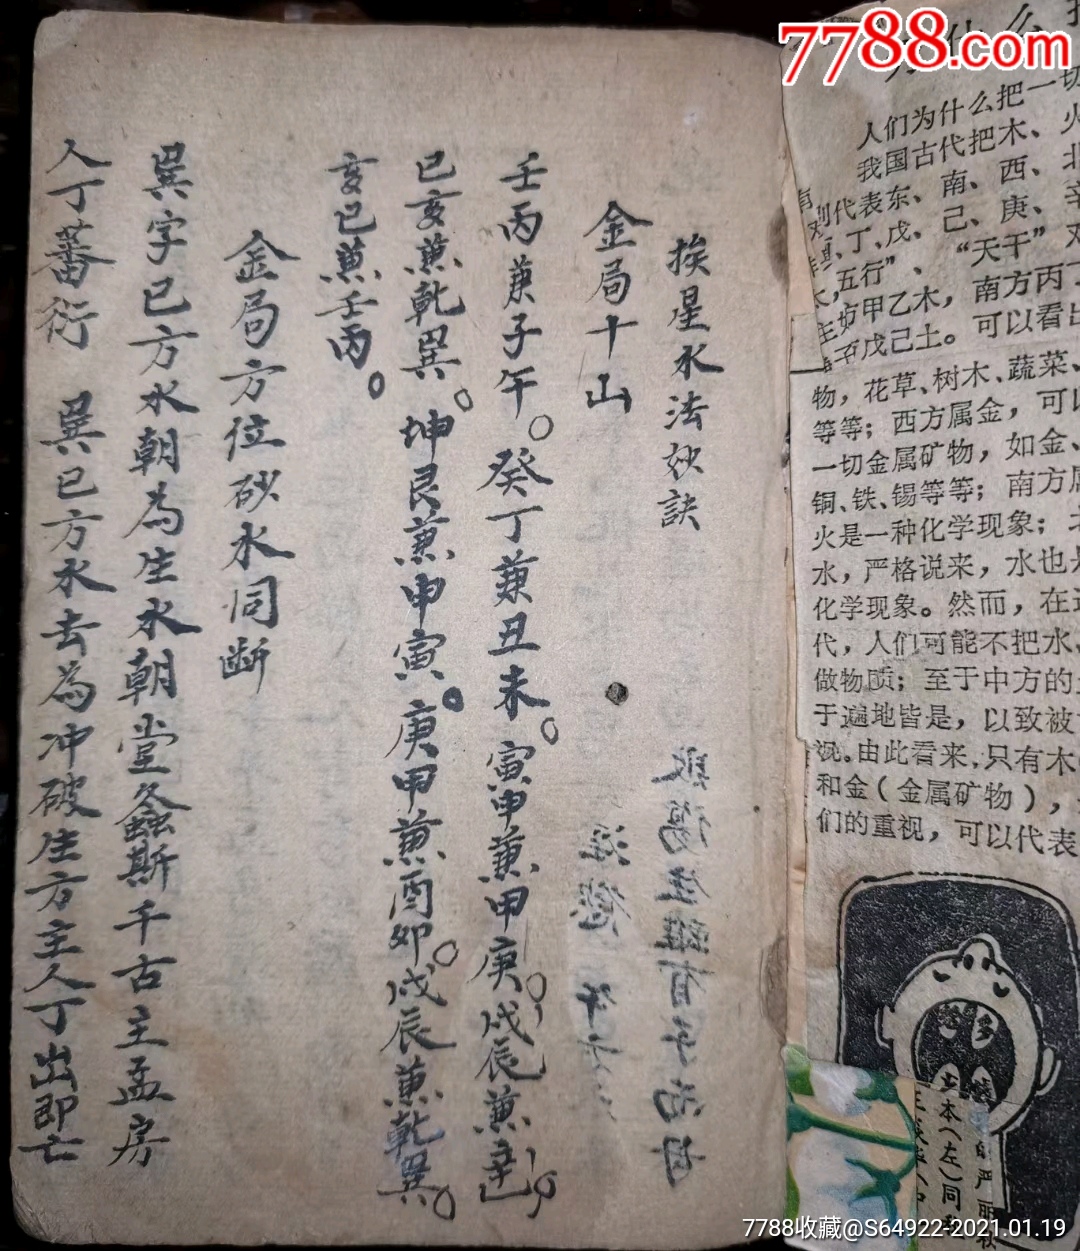 挨星水法妙訣
金局十山
壬丙兼子午。癸丁兼丑未。寅申兼甲庚。戌辰兼辛
巳亥兼乾巽。坤艮兼申寅。庚甲兼酉卯。戌辰兼乾巽。
亥巳兼壬丙。
金局方位砂水同断
巽字巳方水朝為生水朝堂螽斯千古主孟房
人丁蕃衍 巽巳方水去為冲破生方主人丁出即亡
7788.com
什么
人们为什么把一切
我国古代把木、火
代表东、南、西、北
丁、戊、己、庚、辛
五行”、“天干”
甲乙木，南方丙丁
戊己土。可以看出
物，花草、树木、蔬菜、
等等；西方属金，可以
一切金属矿物，如金、
铜、铁、锡等等；南方属
火是一种化学现象；北
水，严格说来，水也是
化学现象。然而，在这
代，人们可能不把水、
做物质；至于中方的土
于遍地皆是，以致被
视。由此看来，只有木
和金（金属矿物），
们的重视，可以代表
本（左）同
7788收藏@S64922-2021.01.19